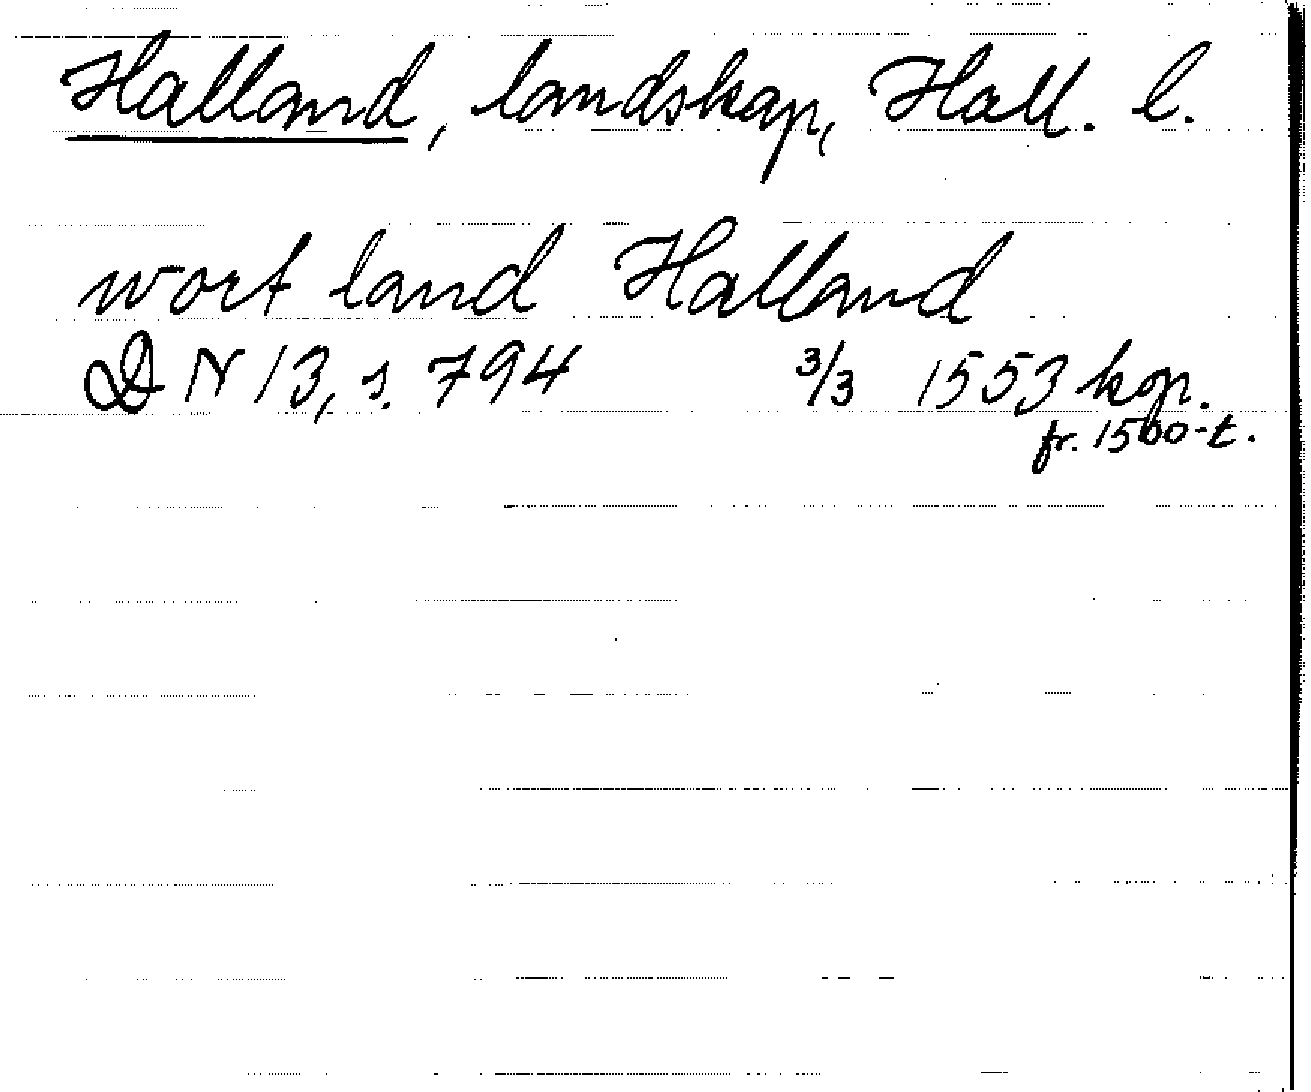 Halland, landskap, Hall. l.
wort land Halland
DN 13, s. 794 3/3 1553 kop.
fr. 1500-t.